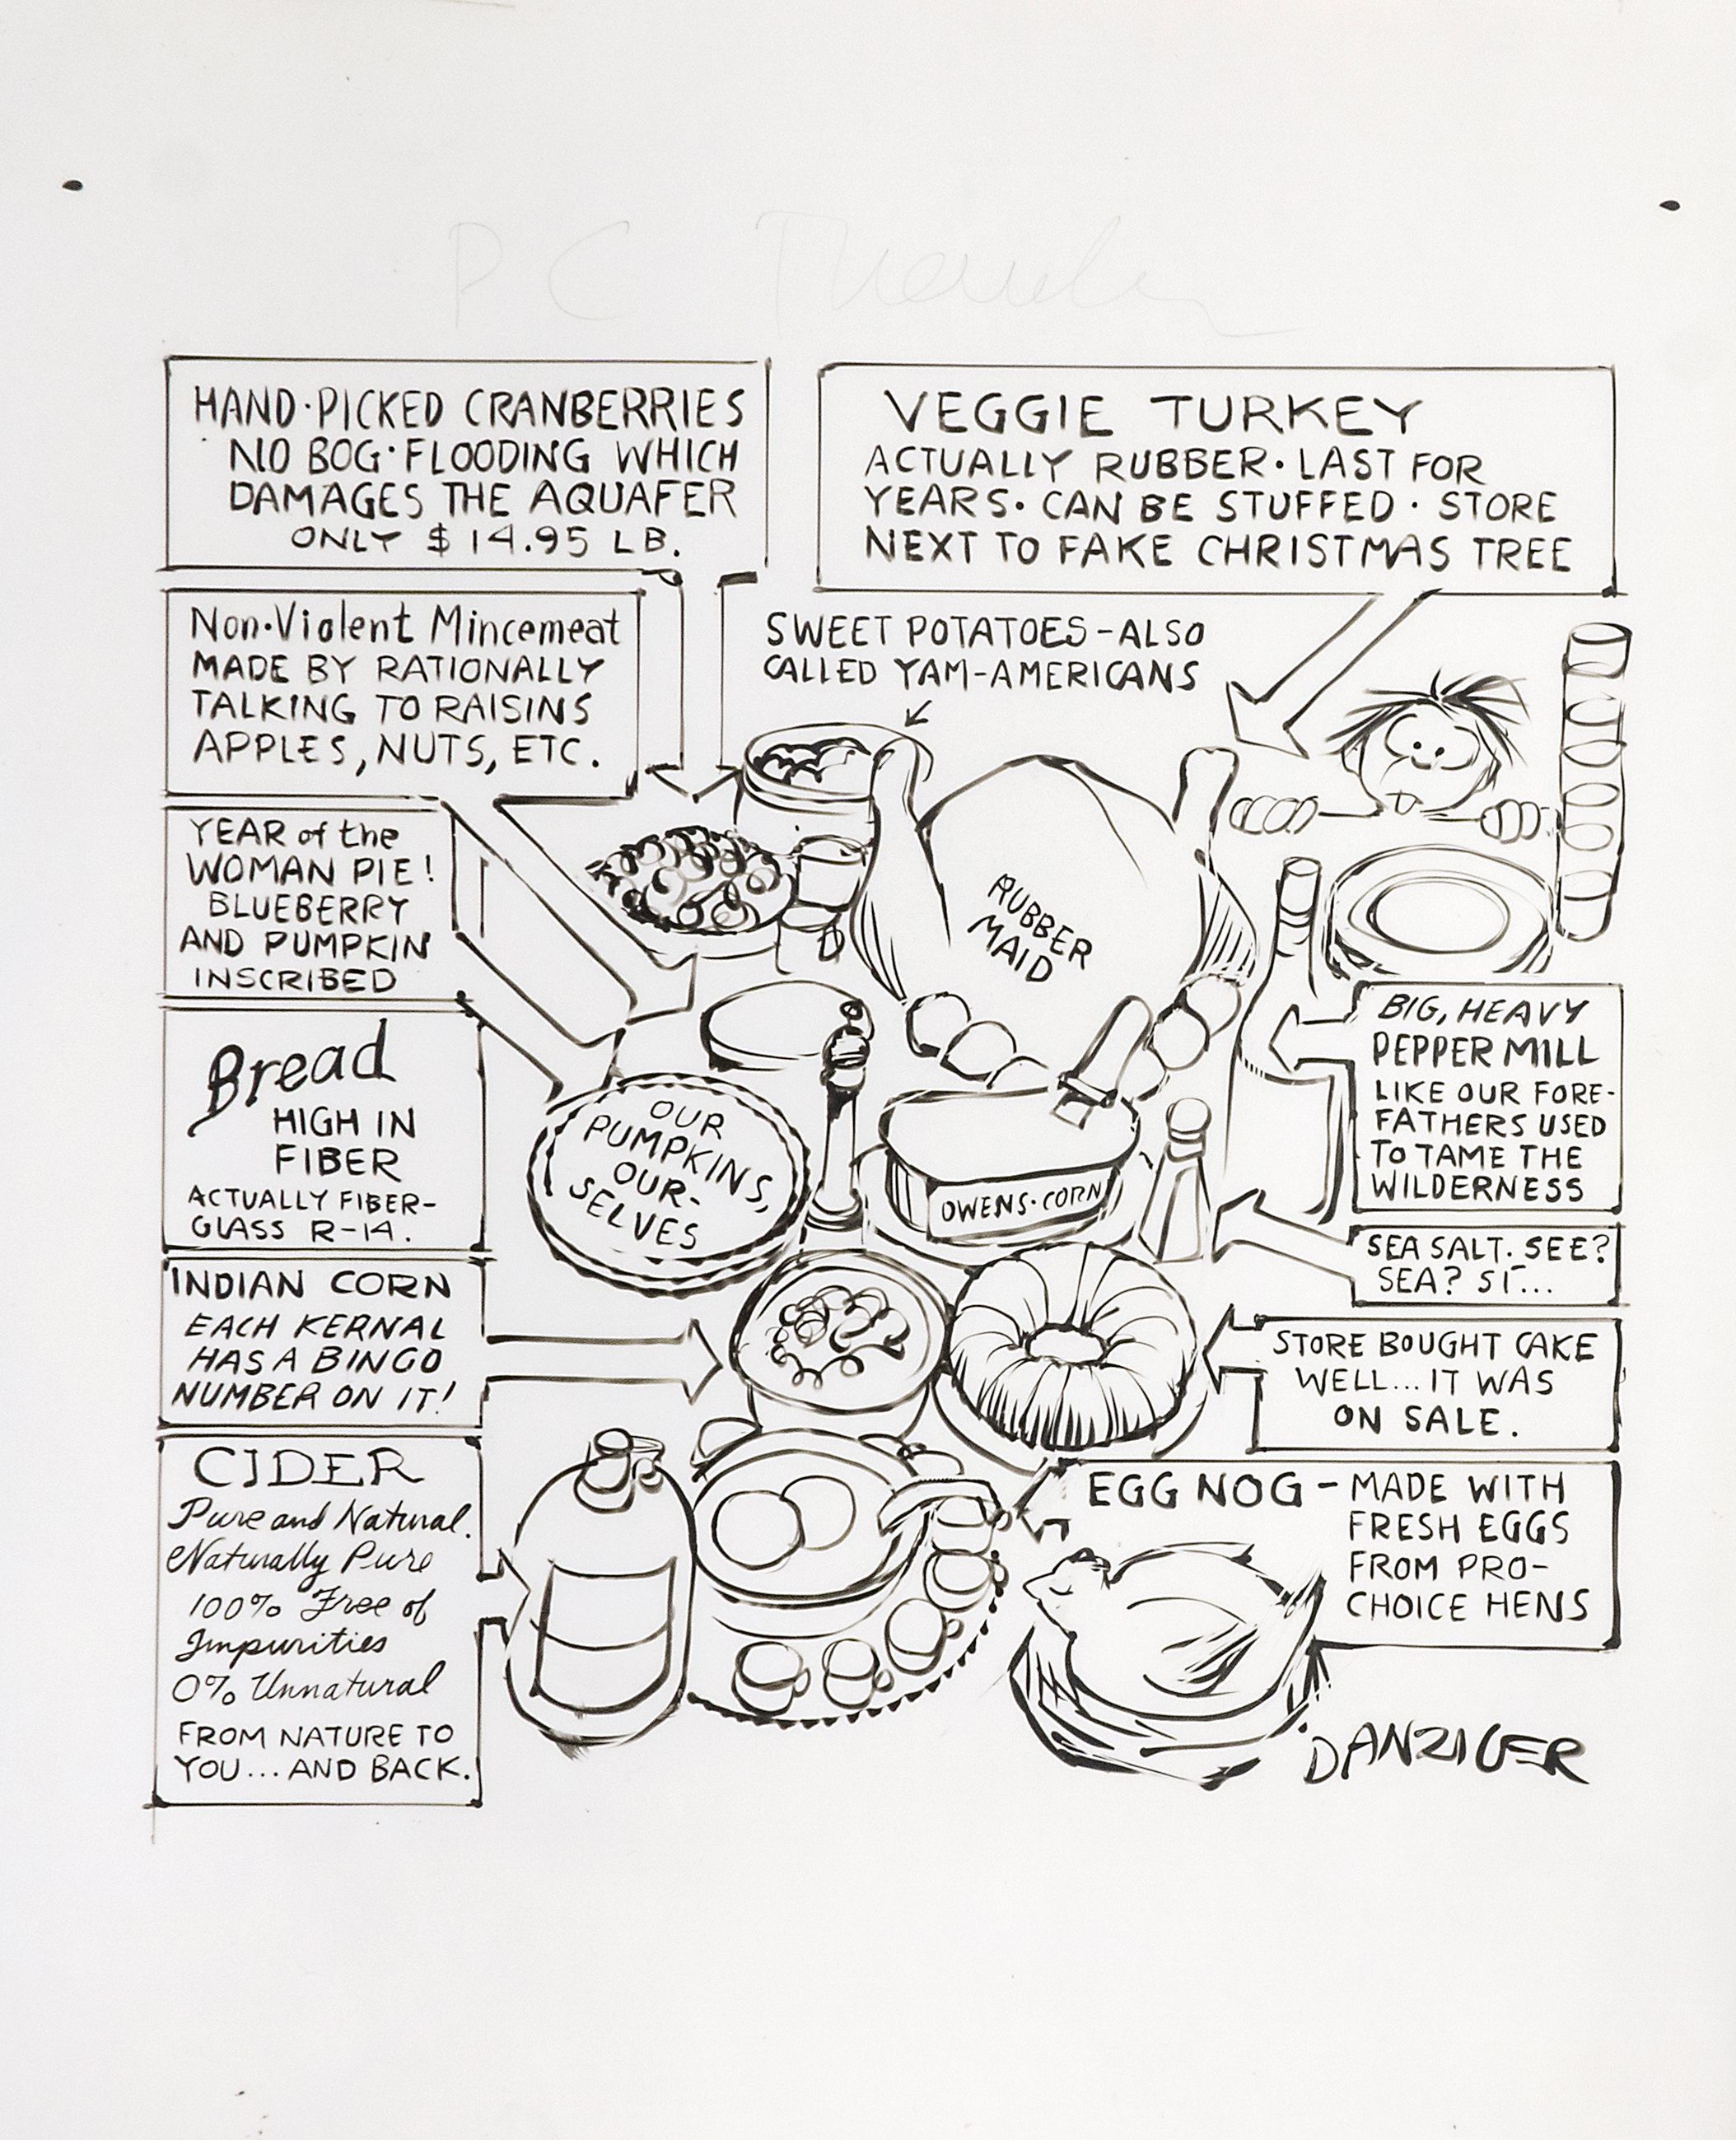 P C
HAND·PICKED CRANBERRIES
NO BOG·FLOODING WHICH
DAMAGES THE AQUAFER
ONLY $14.95 LB.
VEGGIE TURKEY
ACTUALLY RUBBER·LAST FOR
YEARS·CAN BE STUFFED·STORE
NEXT TO FAKE CHRISTMAS TREE
Non·Violent Mincemeat
MADE BY RATIONALLY
TALKING TO RAISINS
APPLES, NUTS, ETC.
SWEET POTATOES-ALSO
CALLED YAM-AMERICANS
YEAR of the
WOMAN PIE!
BLUEBERRY
AND PUMPKIN
INSCRIBED
RUBBER
MAID
Bread
HIGH IN
FIBER
ACTUALLY FIBER-
GLASS R-14.
OUR
PUMPKINS,
OUR-
SELVES
OWENS·CORN
BIG, HEAVY
PEPPER MILL
LIKE OUR FORE-
FATHERS USED
TO TAME THE
WILDERNESS
SEA SALT. SEE?
SEA? SI...
INDIAN CORN
EACH KERNAL
HAS A BINGO
NUMBER ON IT!
STORE BOUGHT CAKE
WELL... IT WAS
ON SALE.
CIDER
Pure and Natural.
Naturally Pure
100% Free of
Impurities
0% Unnatural
FROM NATURE TO
YOU... AND BACK.
EGG NOG - MADE WITH
FRESH EGGS
FROM PRO-
CHOICE HENS
DANZIGER